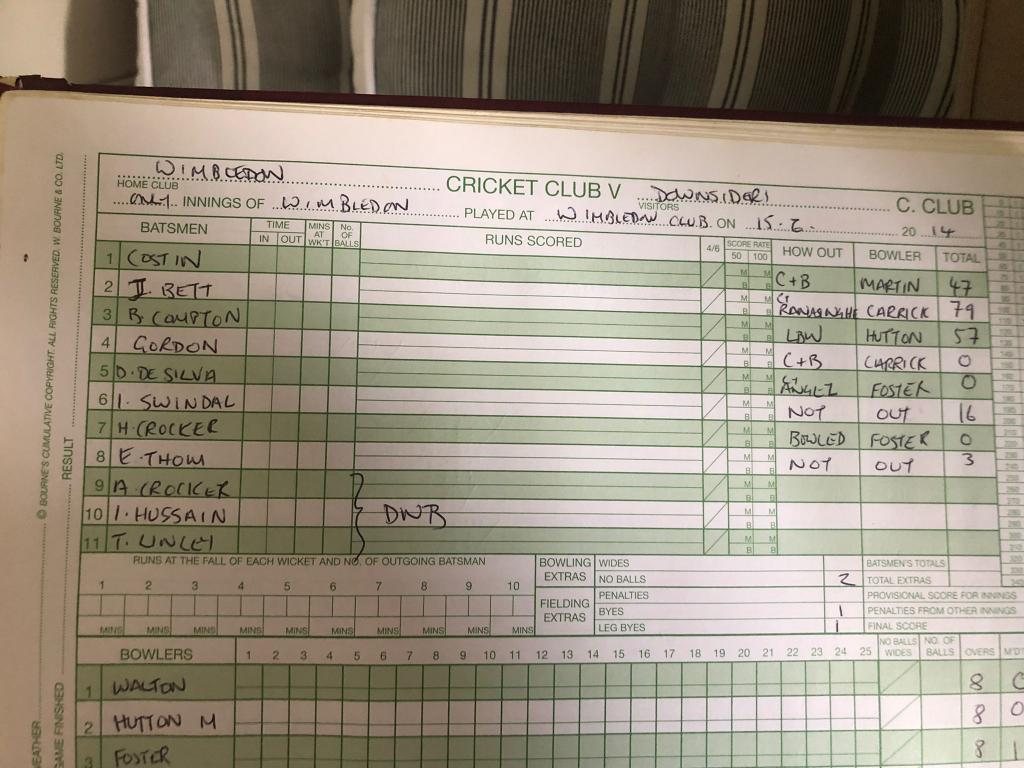 WIMBLEDON CRICKET CLUB V DOWNSIDERS C. CLUB
HOME CLUB VISITORS
ONLY INNINGS OF WIMBLEDON PLAYED AT WIMBLEDON CLUB. ON 15.6. 2014
BATSMEN TIME IN OUT MINS AT WK'T No. OF BALLS RUNS SCORED 4/6 SCORE RATE 50 100 HOW OUT BOWLER TOTAL
1 COSTIN C+B MARTIN 47
2 I. BETT CT RANASINGHE CARRICK 79
3 B. COMPTON LBW HUTTON 57
4 GORDON C+B CARRICK 0
5 D. DE SILVA CT ANGEL FOSTER 0
6 I. SWINDAL NOT OUT 16
7 H. CROCKER BOWLED FOSTER 0
8 E. THOM NOT OUT 3
9 A. CROCKER
10 I. HUSSAIN DNB
11 T. LINLEY
RUNS AT THE FALL OF EACH WICKET AND NO. OF OUTGOING BATSMAN
1 2 3 4 5 6 7 8 9 10
MINS MINS MINS MINS MINS MINS MINS MINS MINS MINS
BOWLING EXTRAS
WIDES
NO BALLS 2
PENALTIES
FIELDING EXTRAS
BYES 1
LEG BYES 1
BATSMEN'S TOTALS
TOTAL EXTRAS
PROVISIONAL SCORE FOR INNINGS
PENALTIES FROM OTHER INNINGS
FINAL SCORE
BOWLERS 1 2 3 4 5 6 7 8 9 10 11 12 13 14 15 16 17 18 19 20 21 22 23 24 25 NO BALLS WIDES NO. OF BALLS OVERS
1 WALTON 8
2 HUTTON M 8 0
3 FOSTER 8 1
© BOURNE'S CUMULATIVE COPYRIGHT. ALL RIGHTS RESERVED. W. BOURNE & CO. LTD.
RESULT
GAME FINISHED